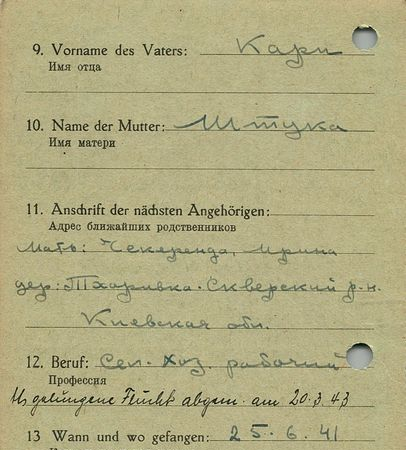 9. Vorname des Vaters: Карп
Имя отца
10. Name der Mutter: Штука
Имя матери
11. Anschrift der nächsten Angehörigen:
Адрес ближайших родственников
Мать: Чекеренда, Ирина
дер: Тхоривка. Скверский р-н.
Киевская обл.
12. Beruf: Сел-хоз. рабочий
Профессия
gelungene Flucht abgem. am 20.3.43
13 Wann und wo gefangen: 25.6.41